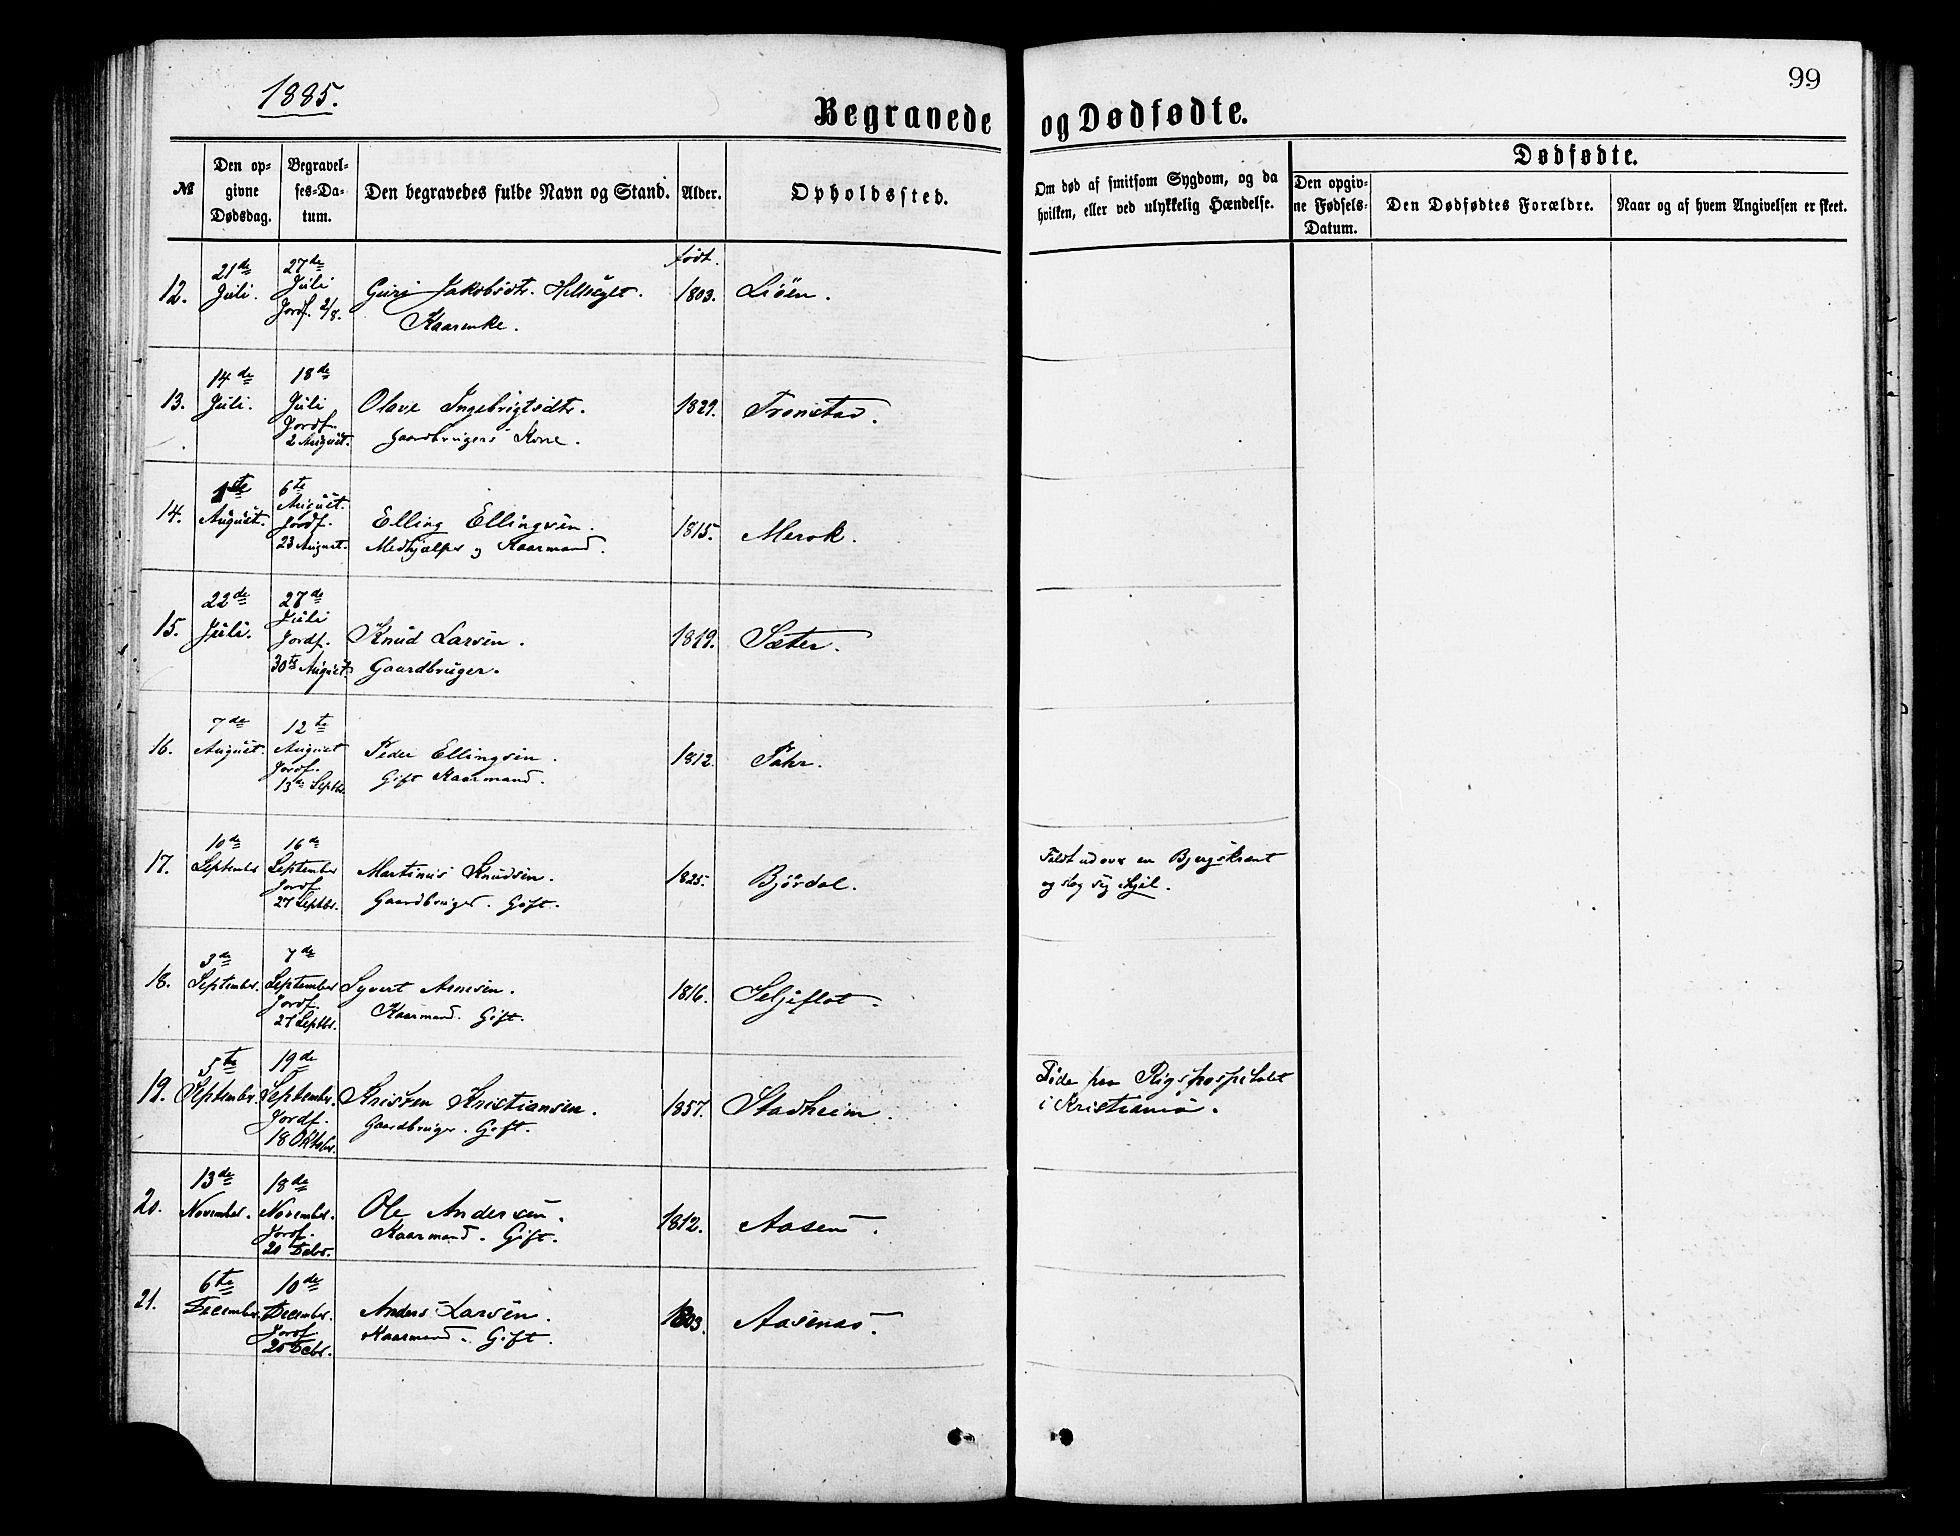 1885.
99
Begravede og Dødfødte.
№
Den opgivne Dødsdag.
Begravelses-Datum.
Den begravedes fulde Navn og Stand.
Alder.
Opholdssted.
Om død af smitsom Sygdom, og da hvilken, eller ved ulykkelig Hændelse.
Dødfødte.
Den opgivne Fødsels-Datum.
Den Dødfødtes Forældre.
Naar og af hvem Angivelsen er skeet.
12. 21de Juli. 27de Juli Jordf. 2/8. Guri Jakobsdtr. Hellsylt. Kaarenke. født. 1803. Liöen.
13. 14de Juli. 18de Juli Jordf. 2 August. Olave Ingebrigtsdtr. Gaardbrugers Kone. 1829. Tronstad.
14. 1ste August. 6te August. Jordf. 23 August. Elling Ellingsen. Medhjælper og Kaarmand. 1815. Merok.
15. 22de Juli. 27de Juli Jordf. 30te August. Knud Larsen. Gaardbruger. 1819. Sæter.
16. 7de August. 12te August Jordf. 13de Septbr. Peder Ellingsen. Gift Kaarmand. 1812.
17. 10de September 16de September Jordf. 27 Septbr. Martinus Knudsen. Gaardbruger. Gift. 1825. Bjørdal. Faldt ud over en Bjergskrænt og slog sig ihjel.
18. 3de September. 7de September Jordf. 27 Septbr. Syvert Arnesen. Kaarmand. Gift. 1816. Seljeflot.
19. 5te September. 19de September. Jordf. 18 Oktober. Kristen Kristiansen. Gaardbruger. Gift. 1857. Stadheim. Døde paa Rigshospitalet i Kristiania.
20. 13de November. 18de November. Jordf. 20 Debr. Ole Andersen. Kaarmand. Gift. 1812. Aasen.
21. 6te December. 10de December. Jordf. 20 Debr. Anders Larsen. Kaarmand. Gift. 1803. Aasenæs.